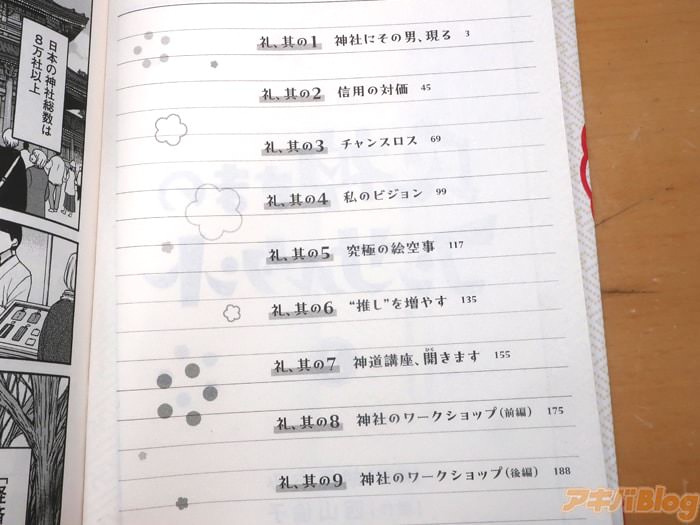 礼、其の1 神社にその男、現る 3
礼、其の2 信用の対価 45
礼、其の3 チャンスロス 69
礼、其の4 私のビジョン 99
礼、其の5 究極の絵空事 117
礼、其の6 “推し”を増やす 135
礼、其の7 神道講座、開きます 155
ひら
礼、其の8 神社のワークショップ(前編) 175
礼、其の9 神社のワークショップ(後編) 188
日本の神社総数は
8万社以上
アキバBlog